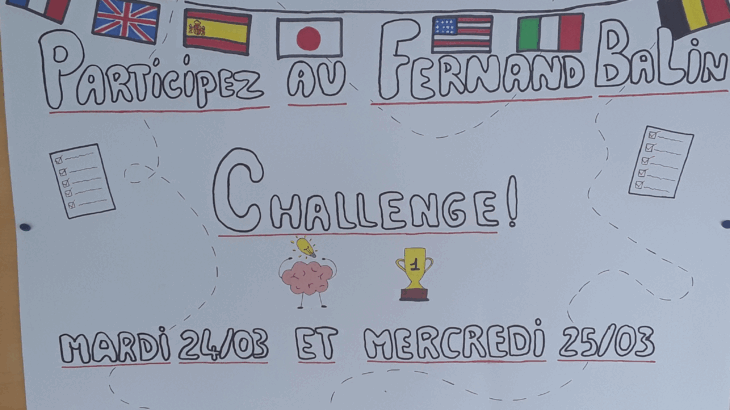 Participez au Fernand Balin
Challenge!
1
Mardi 24/03 et Mercredi 25/03